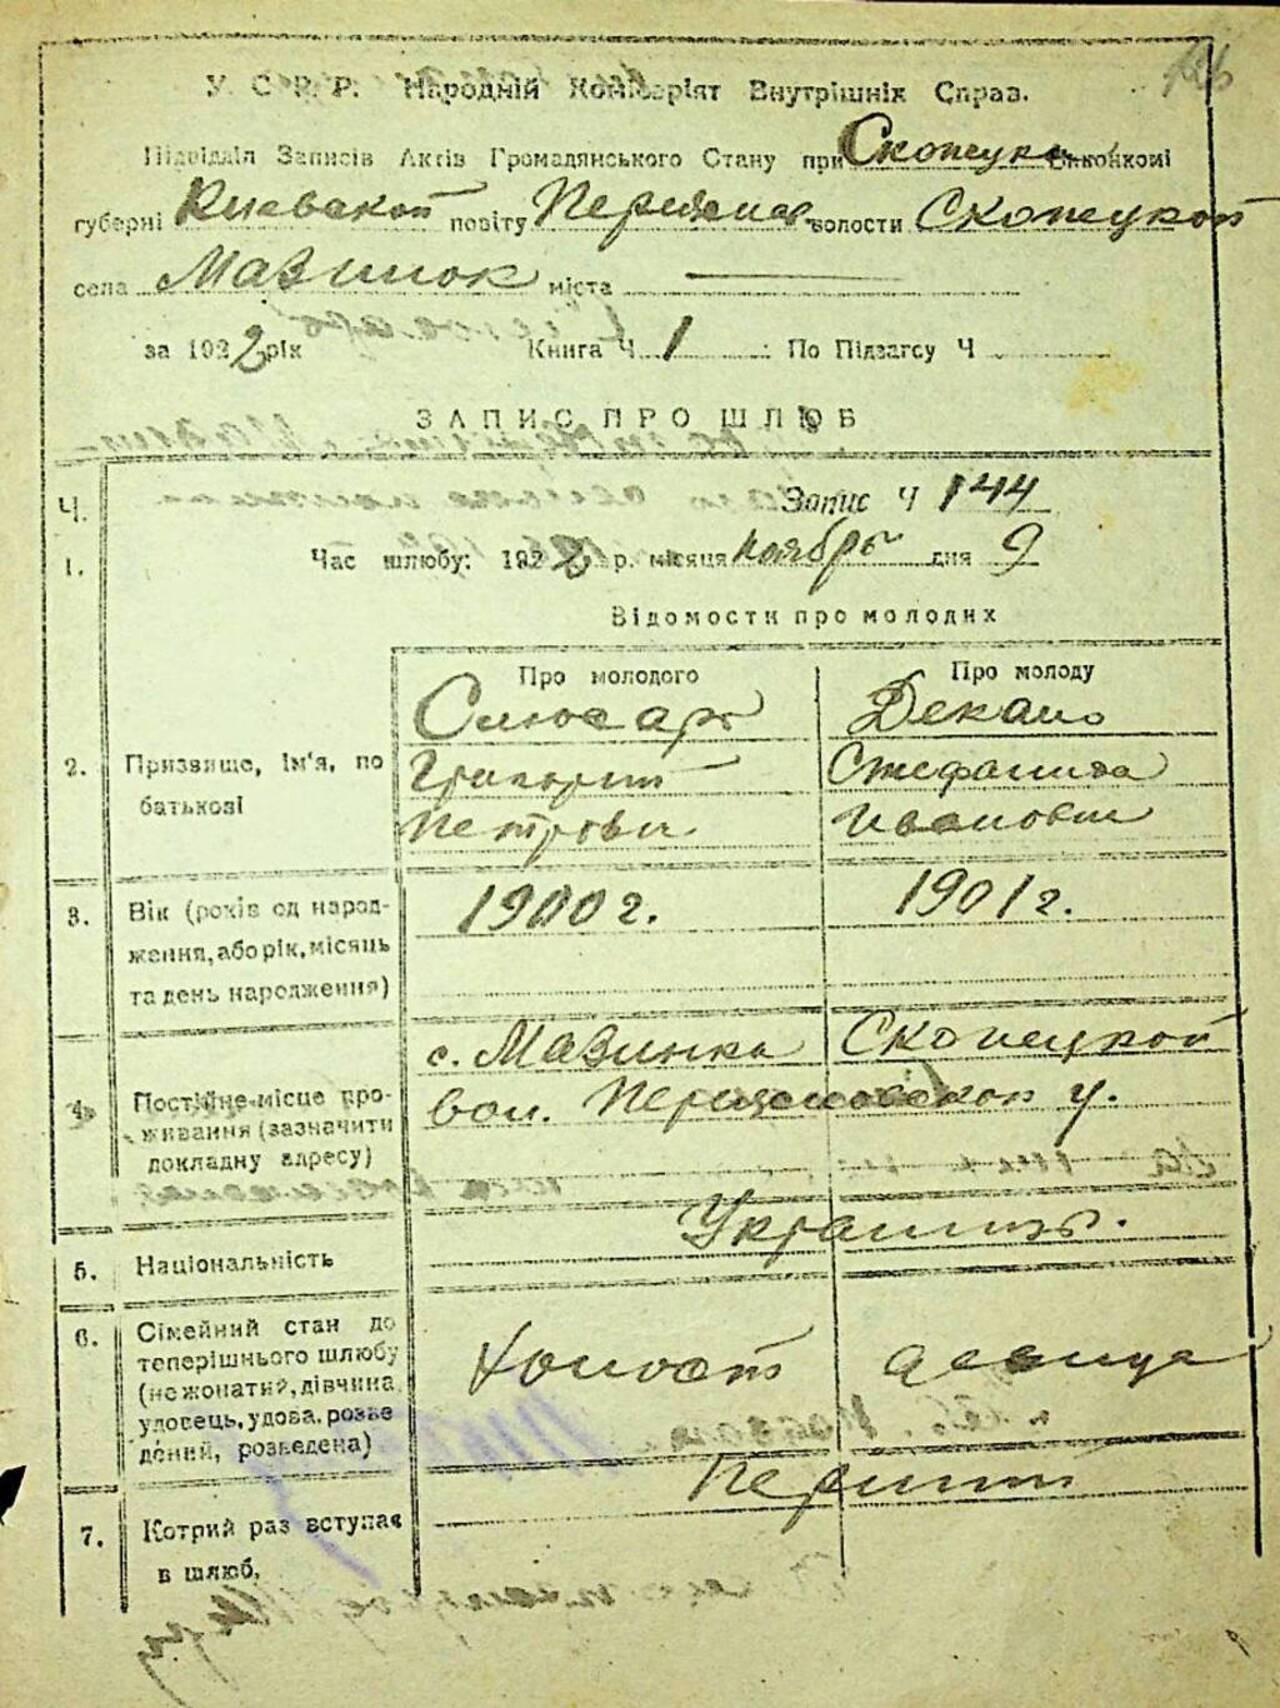 У. С. Р. Р. Народній Комісаріят Внутрішніх Справ.
Підвідділ Записів Актів Громадянського Стану при Скопецком Виконкомі
губерні Киевской повіту Переяслав. волости Скопецкой
села Мазинок міста
за 1922 рік Книга Ч. 1 По Підзагсу Ч
ЗАПИС ПРО ШЛЮБ
Ч. Запис Ч 144
1. Час шлюбу: 1922 р. місяця ноябрь дня 9
Відомости про молодих
Про молодого Про молоду
Слюсарь Декало
2. Призвище, ім'я, по батькові Григорий Стефанида
Петрови Ивановни
3. Вік (років од народ- 1900 г. 1901 г.
ження, або рік, місяць
та день народження)
с. Мазинка Скопецкой
4. Постійне місце про- вол. Переяславской у.
живання (зазначити
докладну адресу)
5. Національність Украинц.
6. Сімейний стан до
теперішнього шлюбу Холост девица
(нежонатий, дівчина
удовець, удова, розве
дений, розведена)
Первый
7. Котрий раз вступає
в шлюб.